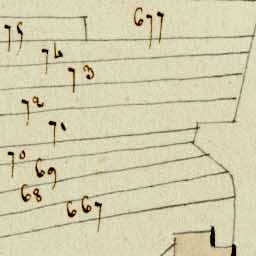 677
75
74
73
72
71
70
69
68
667